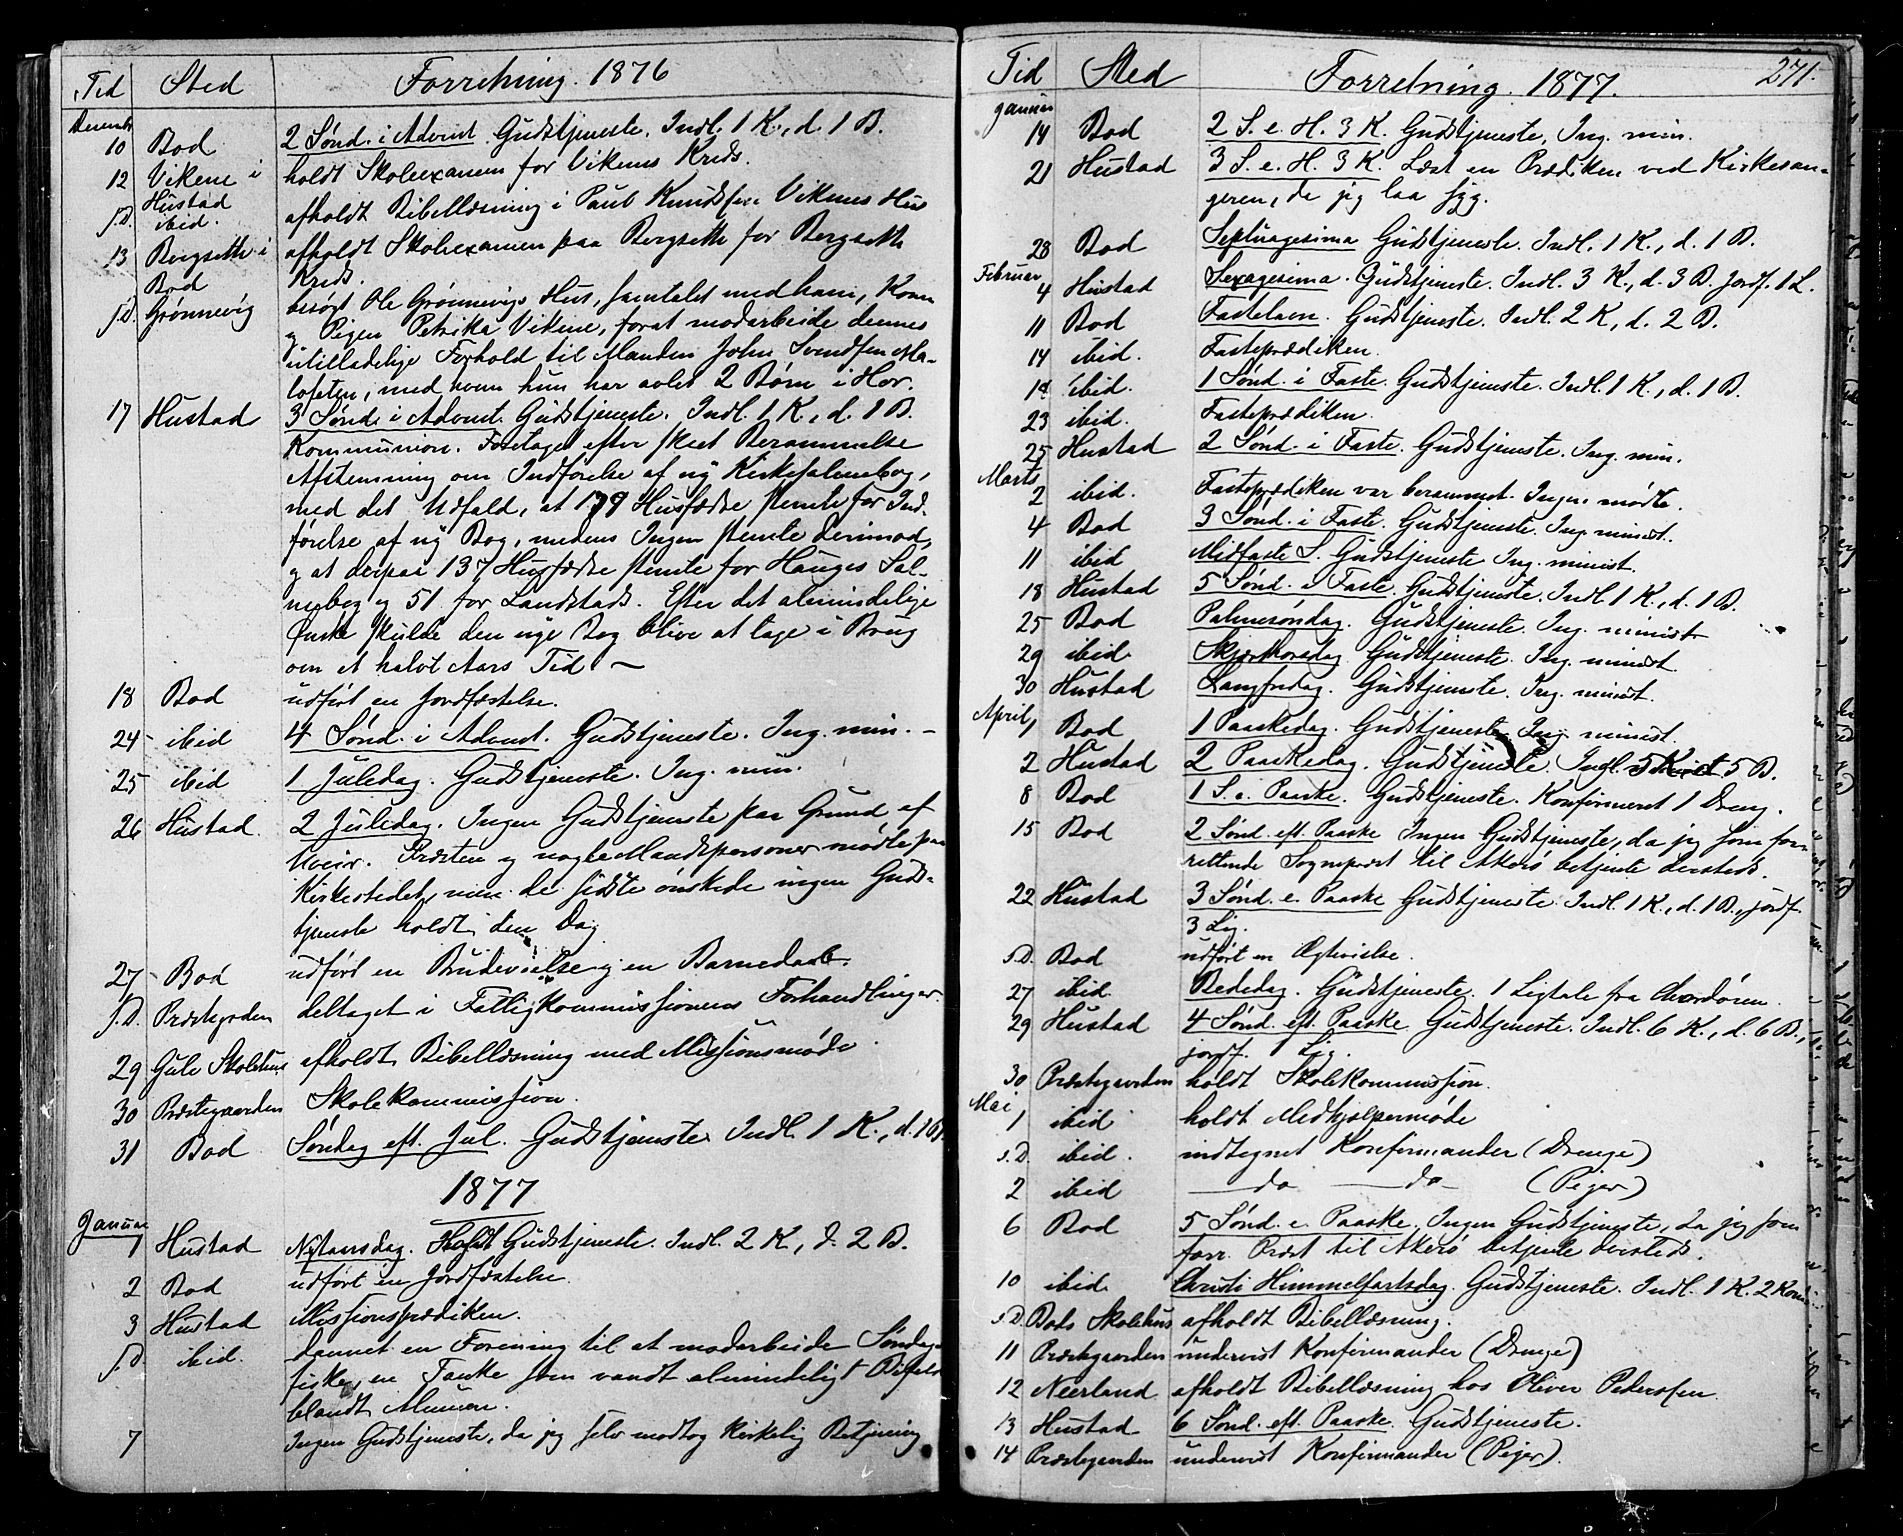 Tid Sted Forretning. 1876
Decembr
10 Bod 2 Sønd. i Advent. Gudstjeneste. Indl. 1 K., d. 1 B.
12 Vikene i Hustad holdt Skoleexamen for Vikenes Kreds.
s.D. ibid. afholdt Bibellæsning i Paul Knudssen Vikenes Hus
13 Bergseth i Bod afholdt Skoleexamen paa Bergseth for Bergseth
Kreds.
s.D. Grønnevig besøgt Ole Grønnevigs Hus, samtalet med ham, Kone
og Pigen Petrika Vikene, forat modarbeide dennes
utilladelige Forhold til Manden John Svendsen Ma-
lefeten, med hvem hun har avlet 2 Børn i Hor.
17 Hustad 3 Sønd. i Advent. Gudstjeneste. Indl. 1 K., d. 1 B.
Kommunion. Foretaget efter skeet Berammelse
Afstemning om Indførelse af ny Kirkesalmebog,
med det Udfald, at 179 Husfædre stemte for Ind-
førelse af ny Bog, medens Ingen stemte derimod,
og at derpaa 137 Husfædre stemte for Hauges Sal-
mebog og 51 for Landstads. Efter det almindelige
Ønske skulde den nye Bog blive at tage i Brug
om et halvt Aars Tid —
18 Bod udført en Jordfæstelse.
24 ibid 4 Sønd. i Advent. Gudstjeneste. Ing. min. —
25 ibid 1 Juledag. Gudstjeneste. Ing. min.
26 Hustad. 2 Juledag. Ingen Gudstjeneste paa Grund af
Uveir. Præsten og nogle Mandspersoner mødte paa
Kirkestedet, men de sidste ønskede ingen Guds-
tjeneste holdt den Dag.
27 Bod udført en Brudevielse og en Barnedaab.
s.D. Præstegården deltaget i Fattigkommissionens Forhandlinger.
29 Gule Skolehus afholdt Bibellæsning med Missionsmøde.
30 Præstegaarden Skolekommission.
31 Bod Søndag eft. Jul. Gudstjeneste. Indl. 1 K., d. 1 B.
1877
Januar
1 Hustad Nytaarsdag. Holdt Gudstjeneste. Indl. 2 K., d. 2 B.
2 Bod udført en Jordfæstelse.
3 Hustad Missionsprædiken.
s.D. ibid. dannet en Forening til at modarbeide Søndags-
fiske, en Tanke som vandt almindeligt Bifald
blandt Almuen.
7 Ingen Gudstjeneste, da jeg selv modtog kirkelig Betjening
Tid Sted Forretning. 1877. 271.
Januar
14 Bod 2 S. e. H. 3 K. Gudstjeneste, Ing. min.
21 Hustad 3 S. e. H. 3 K. Læst en Prædiken ved Kirkesan-
geren, da jeg laa syg.
28 Bod Septuagesima Gudstjeneste. Indl. 1 K., d. 1 B.
Februar
4 Hustad Sexagesima. Gudstjeneste. Indl. 3 K., d. 3 B. Jordf. 1 L.
11 Bod Fastelavn. Gudstjeneste. Indl. 2 K, d. 2 B.
14 ibid. Fasteprædiken.
18 ibid. 1 Sønd. i Faste. Gudstjeneste. Indl. 1 K., d. 1 B.
23 ibid. Fasteprædiken.
25 Hustad 2 Sønd. i Faste. Gudstjeneste. Ing. min.
Marts
2 ibid. Fasteprædiken var berammet. Ingen mødte.
4 Bod 3 Sønd. i Faste. Gudstjeneste. Ing. minist.
11 ibid Midfaste S. Gudstjeneste Ing. minist.
18 Hustad 5 Sønd. i Faste. Gudstjeneste. Indl. 1 K., d. 1 B.
25 Bod Palmesøndag. Gudstjeneste. Ing. minist
29 ibid. Skjærthorsdag. Gudstjeneste. Ing. minist
30 Hustad Langfredag. Gudstjeneste. Ing. minist.
April
1 Bod 1 Paaskedag. Gudstjeneste. Ing. minist.
2 Hustad 2 Paaskedag. Gudstjeneste. Indl. 5 K. 5 B.
8 Bod 1 S. e. Paaske. Gudstjeneste. Konfirmeret 1 Dreng.
15 Bod 2 Sønd. eft. Paaske Ingen Gudstjeneste, da jeg som for-
rettende Sognepræst til Akerø betjente dersteds.
22 Hustad 3 Sønd. e. Paaske Gudstjeneste. Indl. 1 K., d. 1 B., jordf.
3 Lig.
s.D. Bod udført en Ægtevielse.
27 ibid. Bededag. Gudstjeneste. 1 Ligtale fra Chordøren.
29 Hustad 4 Sønd. eft. Paaske. Gudstjeneste. Indl. 6 K., d. 6 B.,
jordf. Lig.
30 Præstegaarden holdt Skolekommission.
Mai
1 ibid holdt Medhjelpermøde
s.D. ibid. indtegnet Konfirmander (Drenge)
2 ibid — do — do — (Piger)
6 Bod 5 Sønd. e. Paaske. Ingen Gudstjeneste, da jeg som
forr. Præst til Akerø betjente dersteds.
10 ibid Christi Himmelfartsdag. Gudstjeneste. Indl. 1 K. 2 Kon
s.D. Bods Skolehus afholdt Bibellæsning.
11 Præstegaarden undervist Konfirmander (Drenge)
12 Neerland afholdt Bibellæsning hos Oliver Pederssen
13 Hustad 6 Sønd. eft. Paaske. Gudstjeneste.
14 Præstegaarden undervist Konfirmander (Piger).